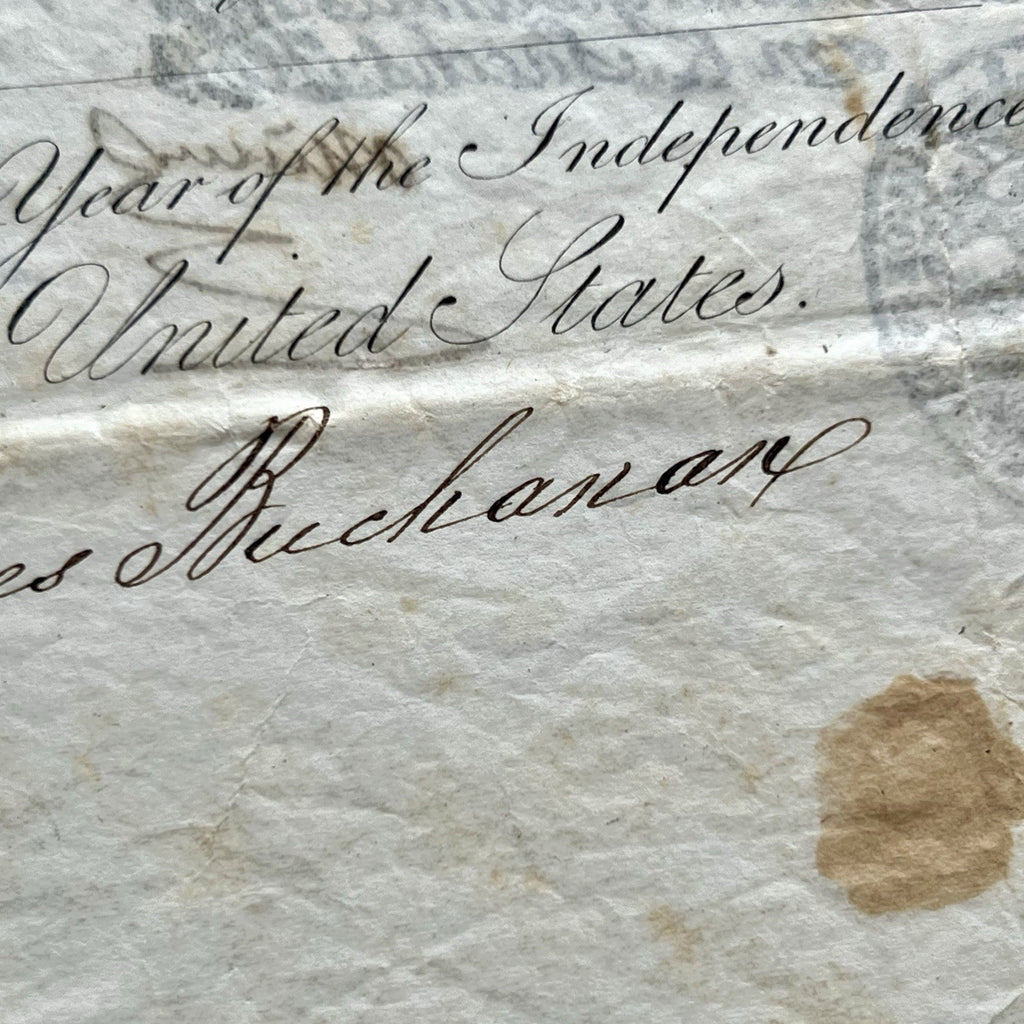 Year of the Independence
United States.
es Buchanan